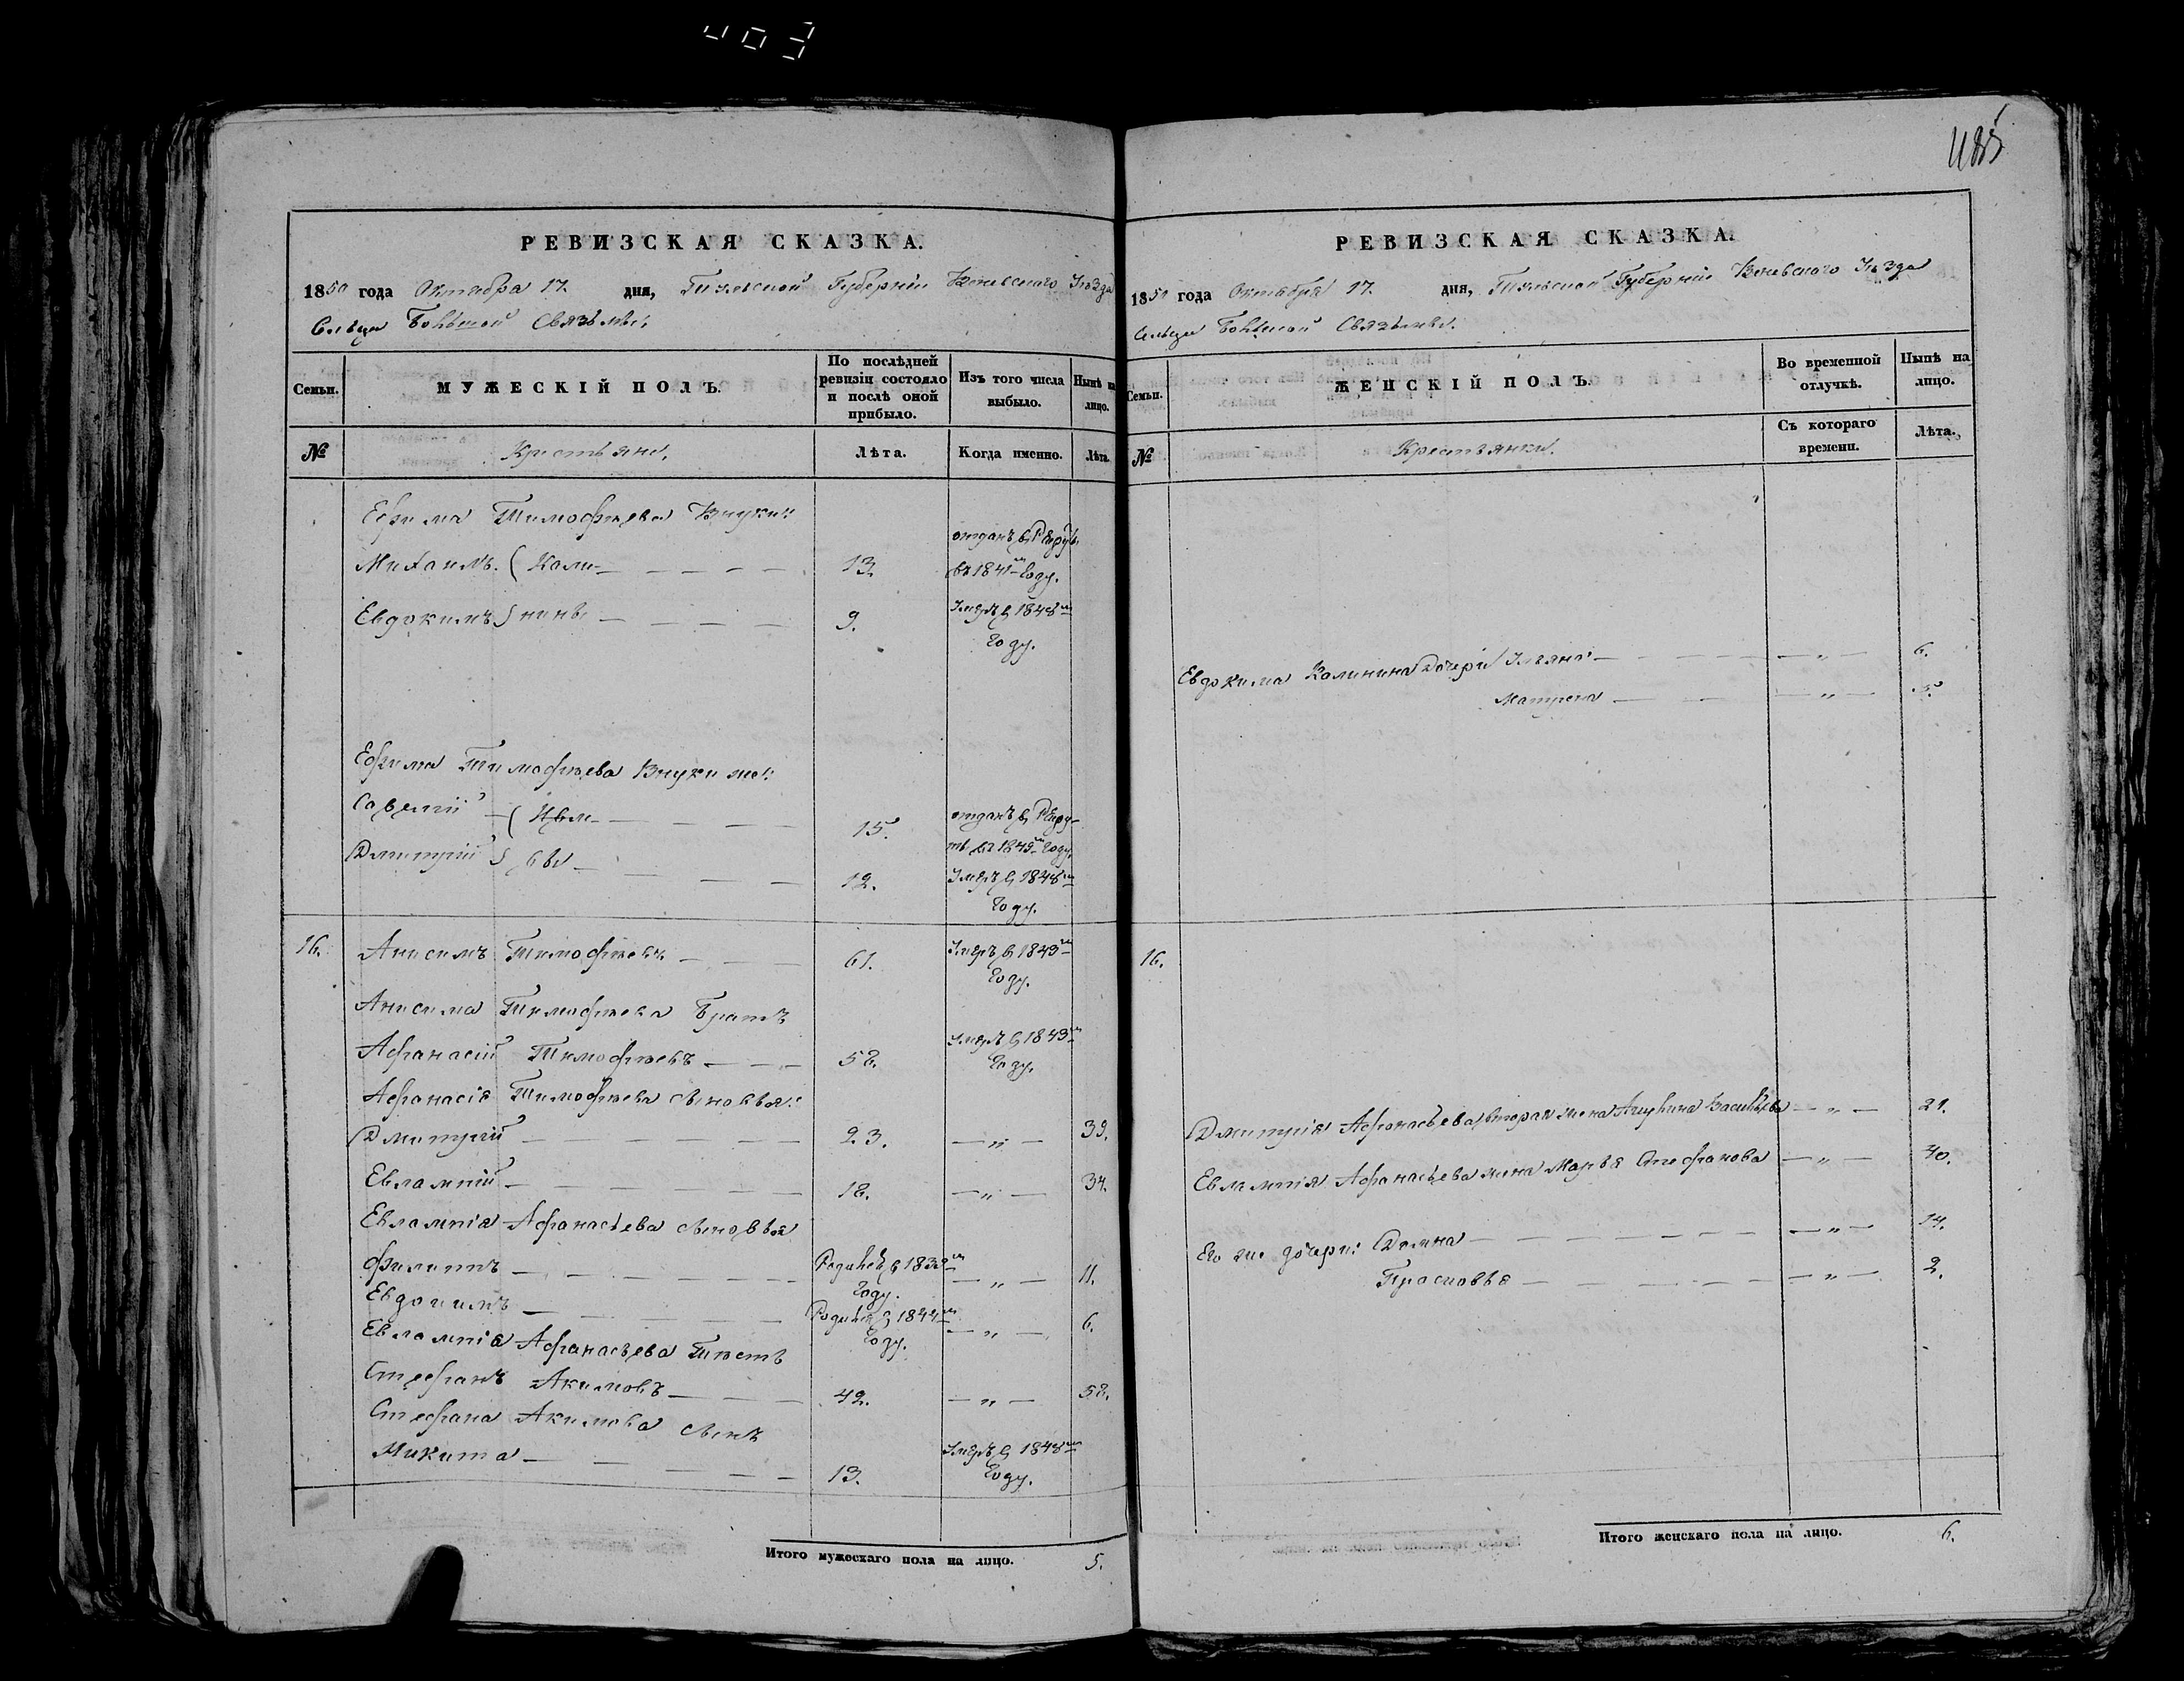 403
485
РЕВИЗСКАЯ СКАЗКА.
1850 года Октября 17. дня, Тульской Губерніи Веневскаго Уѣзда
Сельца Большой Свя
Семьи.
МУЖЕСКІЙ ПОЛЪ.
По послѣдней ревизіи состояло и послѣ оной прибыло.
Изъ того числа выбыло.
Нынѣ на лицо.
№
Крестьяне.
Лѣта.
Когда именно.
Лѣта.
Ефима Тимофѣева Внуки:
Михаилъ. (Кали- 13. отданъ въ Рекру въ 1841м Году.
Евдокимъ) нины 9. Умеръ въ 1848м Году.
Ефима Тимофѣева Внуки же:
Савелій (Ивле- 15. отданъ въ Рекруты въ 1849м Году.
Дмитрій) вы 12. Умеръ въ 1848м Году.
16. Анисимъ Тимофѣевъ 61. Умеръ въ 1849м Году.
Анисима Тимофѣева Братъ
Афанасій Тимофѣевъ 58. Умеръ въ 1849м Году.
Афанасія Тимофѣева сыновья:
Дмитрій 23. — „ — 39.
Евлампій 18. — „ — 34.
Евлампія Афанасьева сыновья
Филиппъ Родился въ 1839м Году. — „ — 11.
Евдокимъ Родился въ 1844м Году. — „ — 6.
Евлампія Афанасьева Тесть
Стефанъ Акимовъ 42. — „ — 58.
Стефана Акимова сынъ
Микита 13. Умеръ въ 1848м Году.
Итого мужескаго пола на лицо. 5.
РЕВИЗСКАЯ СКАЗКА.
1850 года Октября 17. дня, Тульской Губерніи Веневскаго Уѣзда
Сельца Большой
Семьи.
ЖЕНСКІЙ ПОЛЪ.
Во временной отлучкѣ.
Нынѣ на лицо.
№
Крестьянки.
Съ котораго времени.
Лѣта.
Евдокима Калинина Дочери Ульяна — „ — 6.
Матрена — „ — 5.
16.
Дмитрія Афанасьева вторая жена Акулина Васильева — „ — 21.
Евлампія Афанасьева жена Марья Стефанова — „ — 40.
Его же дочери: Домна — „ — 14.
Прасковья — „ — 2.
Итого женскаго пола на лицо. 6.